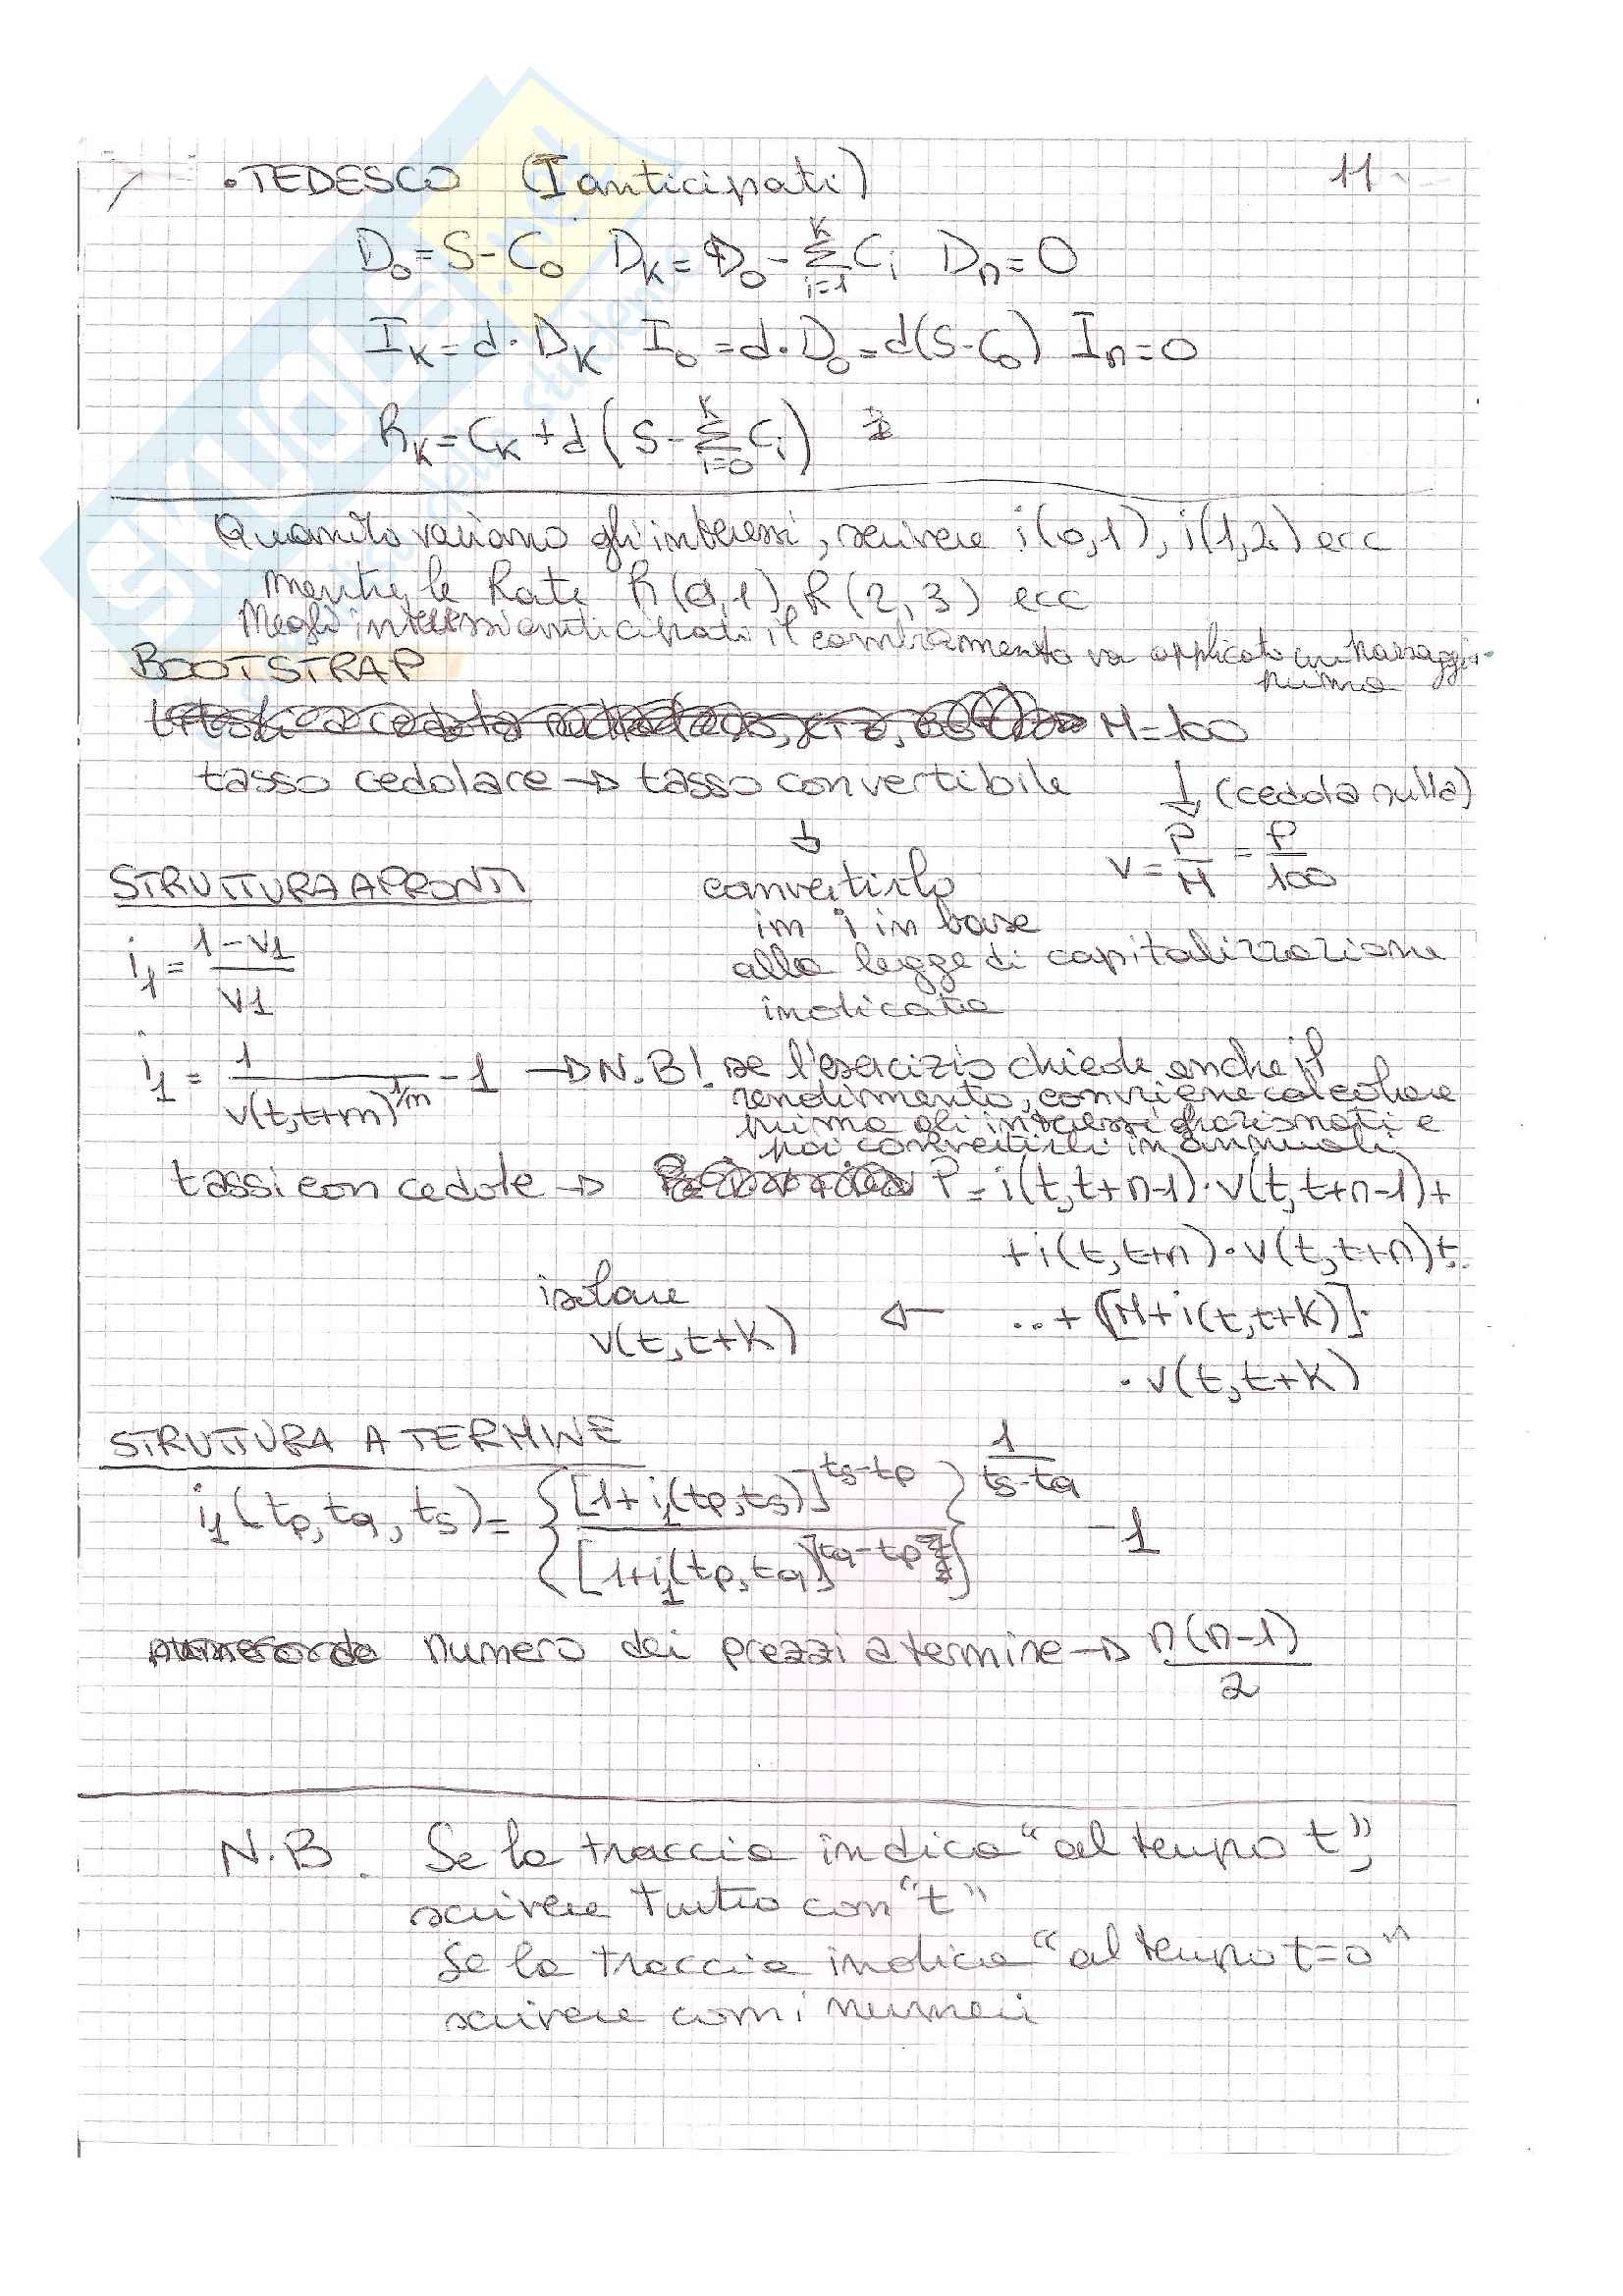 • TEDESCO (I anticipati) 11
D₀ = S - C₀ D_K = D₀ - Σ_{i=1}^{K} C_i D_n = 0
I_K = d · D_K I₀ = d · D₀ = d(S - C₀) I_n = 0
R_K = C_K + d (S - Σ_{i=0}^{K} C_i)
Quando variano gli interessi, scrivere i(0,1), i(1,2) ecc
mentre le Rate R(0,1), R(2,3) ecc
Negli interessi anticipati il cambiamento va applicato un passaggio
prima
BOOTSTRAP
M = 100
tasso cedolare → tasso convertibile ↓ (cedola nulla)
↓ v = P/M = P/100
STRUTTURA A PRONTI
convertirlo
in i in base
i₁ = (1 - v1)/v1
alla legge di capitalizzazione
indicata
i₁ = 1/v(t,t+m)^{1/m} - 1 → N.B! se l'esercizio chiede anche il
rendimento, conviene calcolare
prima gli interessi frazionati e
poi convertirli in annuali
tassi con cedole → P = i(t,t+n-1) · v(t,t+n-1) +
+ i(t,t+n) · v(t,t+n) + ..
isolare
v(t,t+K) ← ..+ [M + i(t,t+K)] ·
· v(t,t+K)
STRUTTURA A TERMINE
i₁(tp,tq,ts) = {[1+i₁(tp,ts)]^{ts-tp} / [1+i₁(tp,tq)]^{tq-tp}}^{1/(ts-tq)} - 1
numero dei prezzi a termine → n(n-1)/2
N.B. Se la traccia indica "al tempo t",
scrivere tutto con "t"
Se la traccia indica "al tempo t=0"
scrivere con i numeri
SKUOLA.net